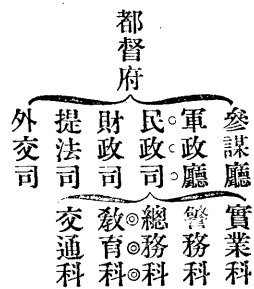 都督府
參謀廳
軍政廳
民政司
財政司
提法司
外交司
實業科
警務科
總務科
敎育科
交通科